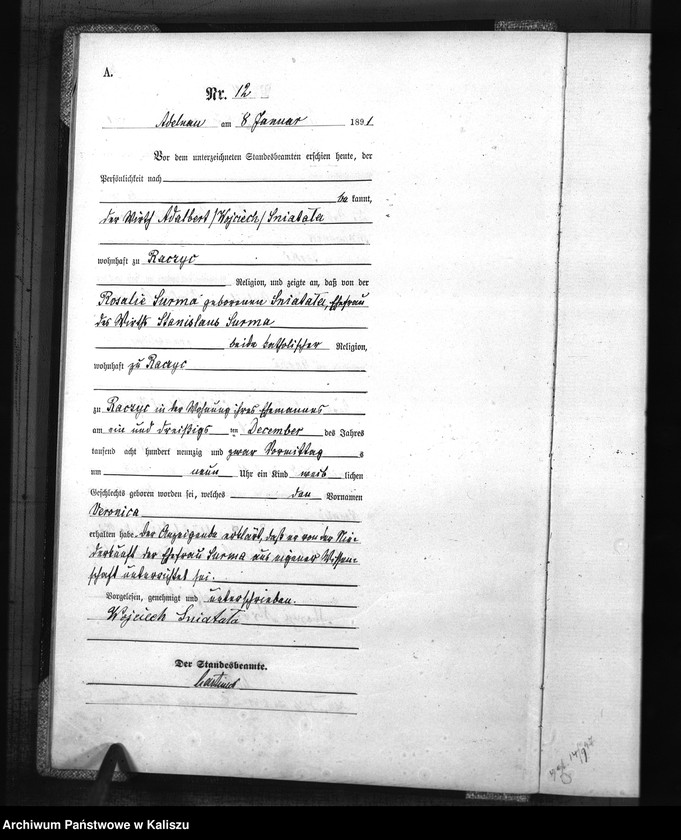 A.
Nr. 12
Adelnau am 8 Januar 1891
Vor dem unterzeichneten Standesbeamten erschien heute, der
Persönlichkeit nach
bekannt,
der Wirth Adalbert /Wojciech/ Sniatała
wohnhaft zu Raczyc
Religion, und zeigte an, daß von der
Rosalie Surma geborenen Sniatała, Ehefrau
des Wirths Stanislaus Surma
beide katholischer Religion,
wohnhaft zu Raczyc
zu Raczyc in der Wohnung ihres Ehemannes
am ein und dreißigs ten December des Jahres
tausend acht hundert neunzig und zwar Vormittag s
um neun Uhr ein Kind weib lichen
Geschlechts geboren worden sei, welches den Vornamen
Veronica
erhalten habe. Der Anzeigende erklärt, daß er von der Nie-
derkunft der Ehefrau Surma aus eigener Wissen-
schaft unterrichtet sei.
Vorgelesen, genehmigt und unterschrieben.
Wojciech Sniatała
Der Standesbeamte.
Archiwum Państwowe w Kaliszu